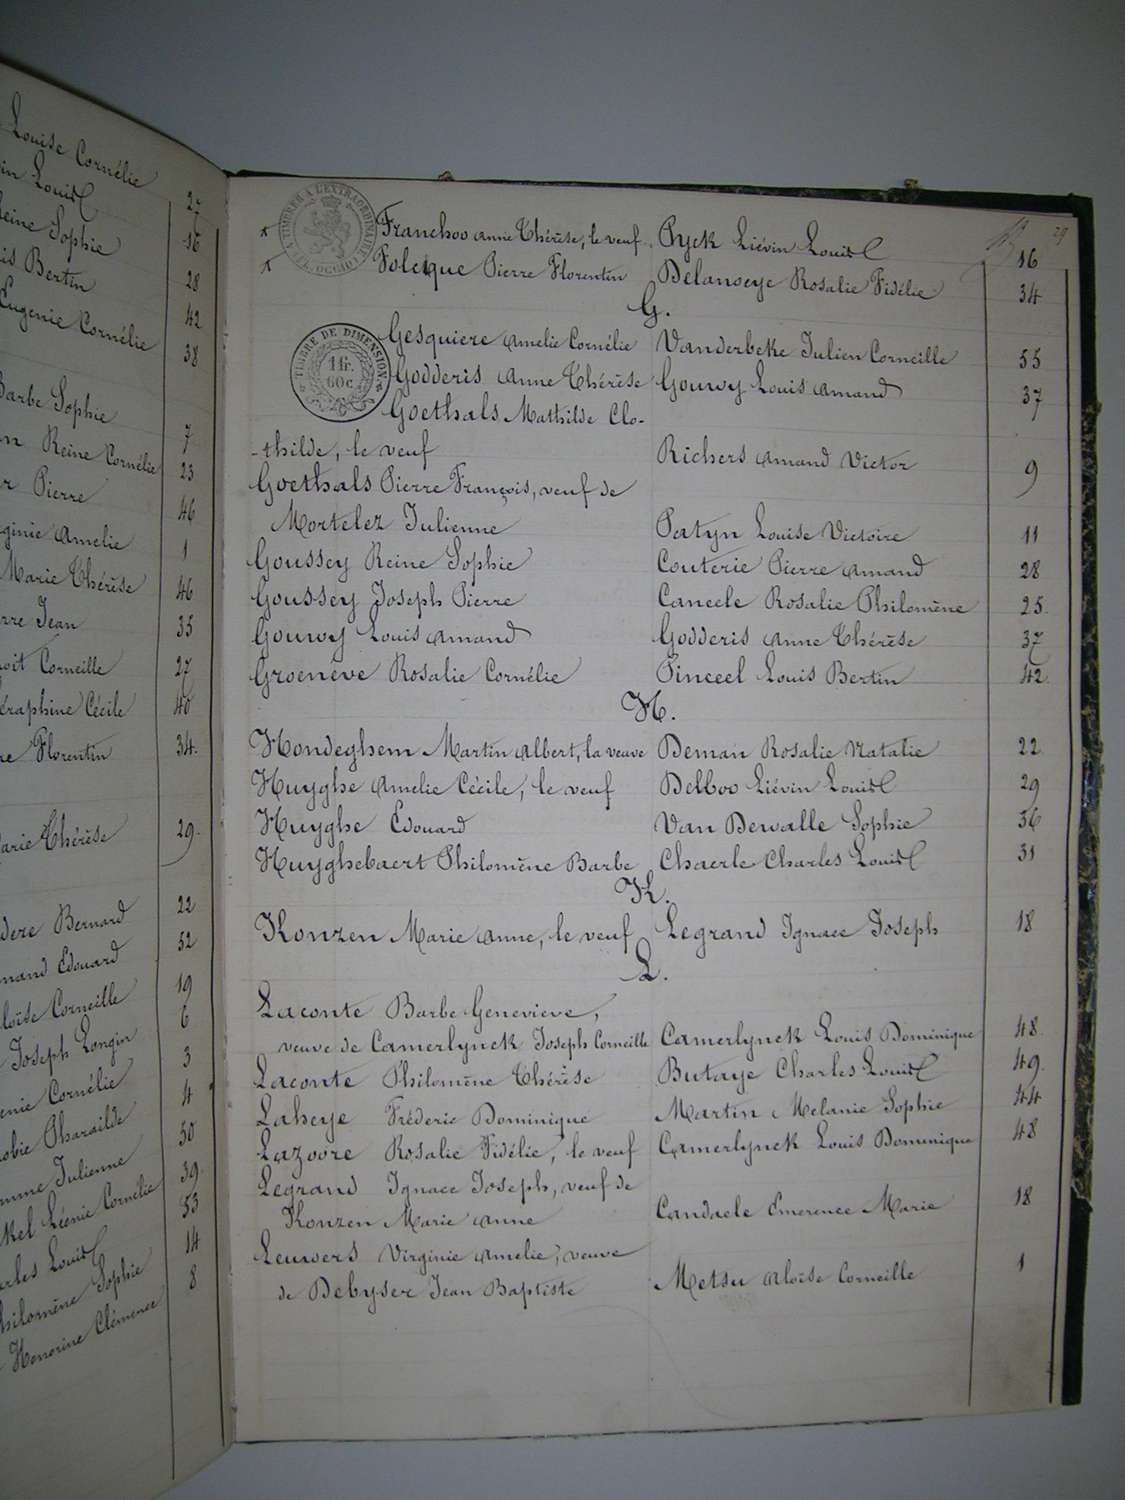 Louise Cornélie 27
Louis 16
Reine Sophie 28
Bertin 42
Eugenie Cornélie 38
Barbe Sophie 7
Reine Cornélie 23
Pierre 46
Amelie 1
Marie Thérèse 46
Jean 35
Corneille 27
Séraphine Cécile 40
Florentin 34.
Marie Thérèse 29.
Bernard 22
Edouard 52
Corneille 19
Joseph Longin 6
Cornélie 3
Pharaïlde 4
Julienne 50
Léonie Cornélie 39.
Louis 53
Philomène Sophie 14
Honorine Clémence 8
29
TIMBRER A L'EXTRAORDINAIRE
Franchoo Anne Thérèse, le veuf Ryck Liévin Louis 16
Folcque Pierre Florentin Delanoeye Rosalie Fidélie 34
G.
TIMBRE DE DIMENSION
1 fr.
60 c.
Gesquiere Amelie Cornélie Vanderbeke Julien Corneille 55
Godderis Anne Thérèse Gouwy Louis Amand 37
Goethals Mathilde Clo-
-thilde, le veuf Richers Amand Victor 9
Goethals Pierre François, veuf de
Mortelez Julienne Patyn Louise Victoire 11
Goussey Reine Sophie Couterie Pierre Amand 28
Goussey Joseph Pierre Caneele Rosalie Philomène 25.
Gouwy Louis Amand Godderis Anne Thérèse 37
Groenéve Rosalie Cornélie Pinceel Louis Bertin 42.
H.
Hondeghem Martin Albert, la veuve Deman Rosalie Natalie 22
Huyghe Amelie Cécile, le veuf Delboo Liévin Louis 29
Huyghe Edouard Van Dewalle Sophie 36
Huyghebaert Philomène Barbe Chaerle Charles Louis 31
K.
Konzen Marie Anne, le veuf Legrand Ignace Joseph 18
L.
Laconte Barbe Geneviève,
veuve de Camerlynck Joseph Corneille Camerlynck Louis Dominique 48.
Laconte Philomène Thérèse Butaye Charles Louis 49.
Laheye Fréderic Dominique Martin Melanie Sophie 44
Lazoore Rosalie Fidélie, le veuf Camerlynck Louis Dominique 48
Legrand Ignace Joseph, veuf de
Konzen Marie Anne Candaele Emerence Marie 18
Leuwers Virginie Amelie, veuve
de Debyser Jean Baptiste Metsu Aloïse Corneille 1